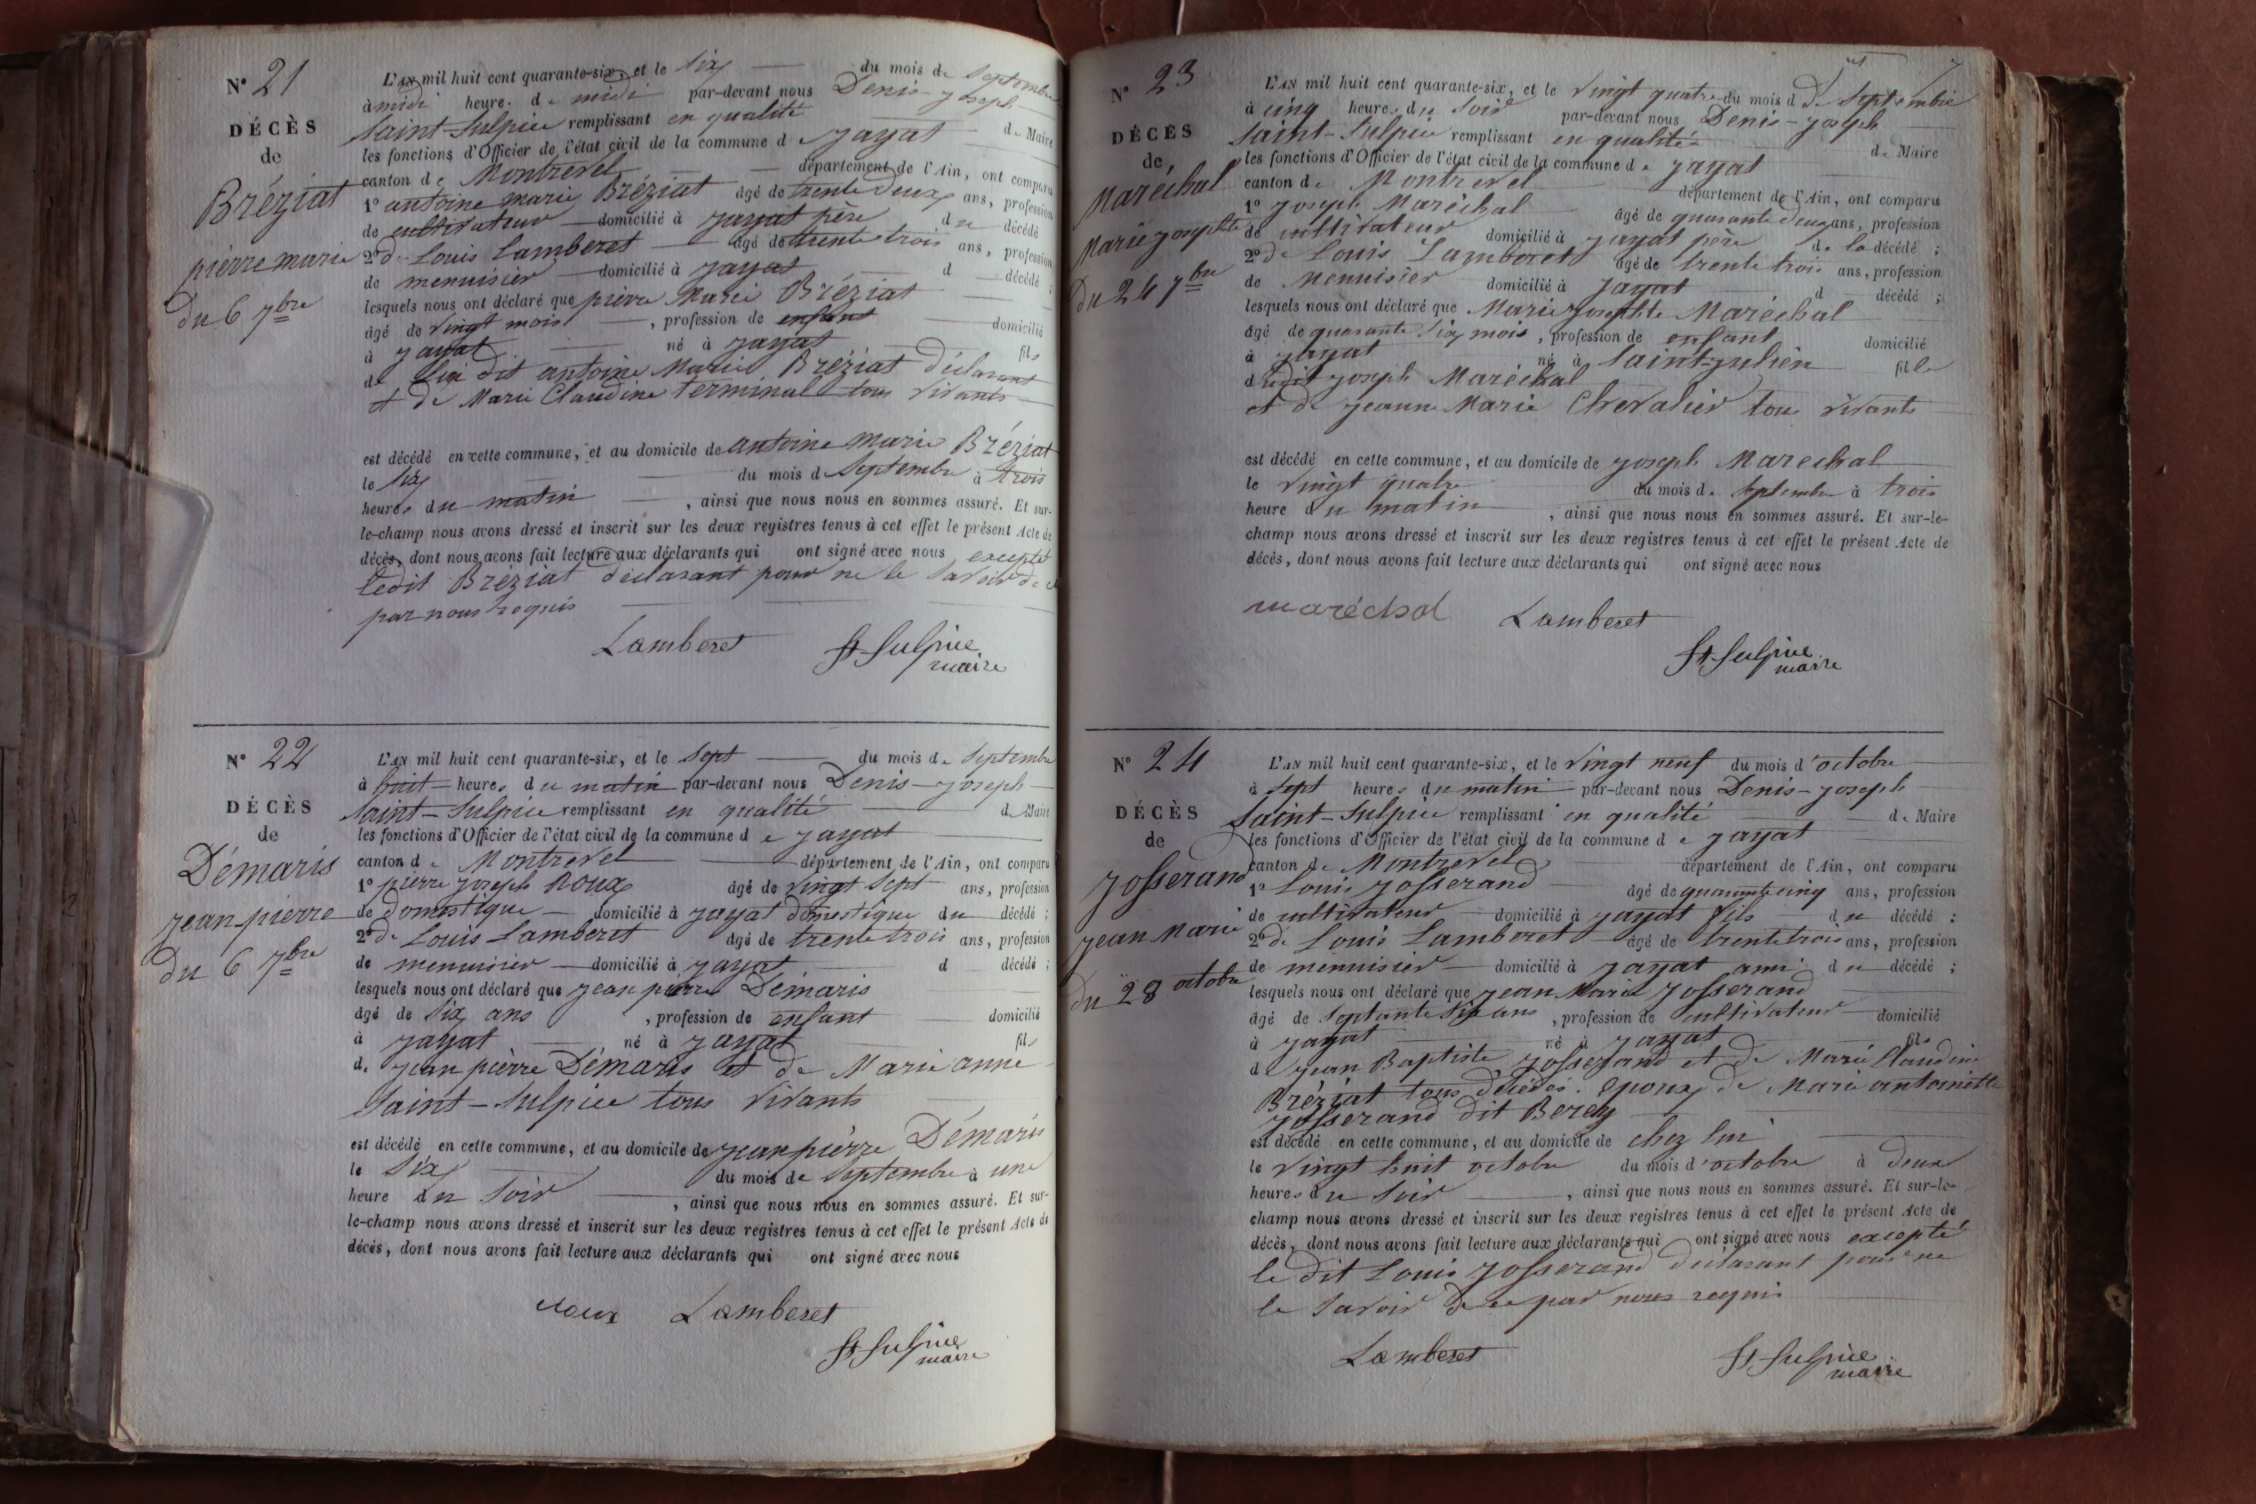 N° 21
DÉCÈS
de
Bréziat
pierre marie
du 6 7bre
L'AN mil huit cent quarante-six, et le Six du mois de Septembre
à midi heure de midi par-devant nous Denis-Joseph
Saint-Sulpice remplissant en qualité de Maire
les fonctions d'Officier de l'état civil de la commune de Jayat
canton de Montrevel département de l'Ain, ont comparu
1° antoine marie Bréziat âgé de trente deux ans, profession
de cultivateur domicilié à Jayat père du décédé
2° de Louis Lamberet âgé de trente trois ans, profession
de menuisier domicilié à Jayat d décédé ;
lesquels nous ont déclaré que pierre Marie Bréziat
âgé de vingt mois, profession de enfant domicilié
à Jayat né à Jayat fils
de lui dit antoine Marie Bréziat déclarant
et de Marie Claudine terminal tous vivants
est décédé en cette commune, et au domicile de antoine marie Bréziat
le Six du mois de Septembre à trois
heures du matin, ainsi que nous nous en sommes assuré. Et sur-
le-champ nous avons dressé et inscrit sur les deux registres tenus à cet effet le présent Acte de
décès, dont nous avons fait lecture aux déclarants qui ont signé avec nous excepté
ledit Bréziat déclarant pour ne le savoir de ce
par nous requis
Lamberet St Sulpice
maire
N° 22
DÉCÈS
de
Démaris
jean-pierre
du 6 7bre
L'AN mil huit cent quarante-six, et le Sept du mois de Septembre
à huit heures du matin par-devant nous Denis-Joseph
Saint-Sulpice remplissant en qualité de Maire
les fonctions d'Officier de l'état civil de la commune de Jayat
canton de Montrevel département de l'Ain, ont comparu
1° pierre joseph Roux âgé de vingt Sept ans, profession
de domestique domicilié à Jayat domestique du décédé ;
2° de Louis Lamberet âgé de trente trois ans, profession
de menuisier domicilié à Jayat d décédé ;
lesquels nous ont déclaré que jean pierre Démaris
âgé de Six ans, profession de enfant domicilié
à Jayat né à Jayat fils
de jean pierre Démaris et de Marie anne
Saint-Sulpice tous vivants
est décédé en cette commune, et au domicile de jean pierre Démaris
le Six du mois de Septembre à une
heure du Soir, ainsi que nous nous en sommes assuré. Et sur-
le-champ nous avons dressé et inscrit sur les deux registres tenus à cet effet le présent Acte de
décès, dont nous avons fait lecture aux déclarants qui ont signé avec nous
roux Lamberet
St Sulpice
maire
N° 23
DÉCÈS
de
Maréchal
Marie josephte
du 24 7bre
L'AN mil huit cent quarante-six, et le vingt quatre du mois d de Septembre
à cinq heures du Soir par-devant nous Denis-Joseph
Saint-Sulpice remplissant en qualité de Maire
les fonctions d'Officier de l'état civil de la commune de Jayat
canton de Montrevel département de l'Ain, ont comparu
1° joseph Maréchal âgé de quarante deux ans, profession
de cultivateur domicilié à Jayat père de la décédé ;
2° de Louis Lamberet âgé de trente trois ans, profession
de Menuisier domicilié à Jayat d décédé ;
lesquels nous ont déclaré que Marie josephte Maréchal
âgé de quarante Six mois, profession de enfant domicilié
à Jayat né à Saint-julien fille
dudit joseph Maréchal
et de jeanne Marie Chevalier tous vivants
est décédé en cette commune, et au domicile de joseph Marechal
le vingt quatre du mois de Septembre à trois
heure du matin, ainsi que nous nous en sommes assuré. Et sur-le-
champ nous avons dressé et inscrit sur les deux registres tenus à cet effet le présent Acte de
décès, dont nous avons fait lecture aux déclarants qui ont signé avec nous
maréchal Lamberet
St Sulpice
maire
N° 24
DÉCÈS
de
Josserand
jean Marie
du 28 octobre
L'AN mil huit cent quarante-six, et le vingt neuf du mois d'octobre
à Sept heures du matin par-devant nous Denis-Joseph
Saint-Sulpice remplissant en qualité de Maire
les fonctions d'Officier de l'état civil de la commune de Jayat
canton de Montrevel département de l'Ain, ont comparu
1° Louis Josserand âgé de quarante cinq ans, profession
de cultivateur domicilié à Jayat fils du décédé ;
2° de Louis Lamberet âgé de trente trois ans, profession
de menuisier domicilié à Jayat ami du décédé ;
lesquels nous ont déclaré que jean Marie Josserand
âgé de Septante Six ans, profession de cultivateur domicilié
à Jayat né à Jayat fils
de jean Baptiste Josserand et de Marie Claudine
Bréziat tous décédés. époux de Marie antoinette
Josserand dit Berey
est décédé en cette commune, et au domicile de chez lui
le vingt huit octobre du mois d'octobre à deux
heures du Soir, ainsi que nous nous en sommes assuré. Et sur-le-
champ nous avons dressé et inscrit sur les deux registres tenus à cet effet le présent Acte de
décès, dont nous avons fait lecture aux déclarants qui ont signé avec nous excepté
le dit Louis Josserand déclarant pour ne
le savoir de ce par nous requis
Lamberet St Sulpice
maire